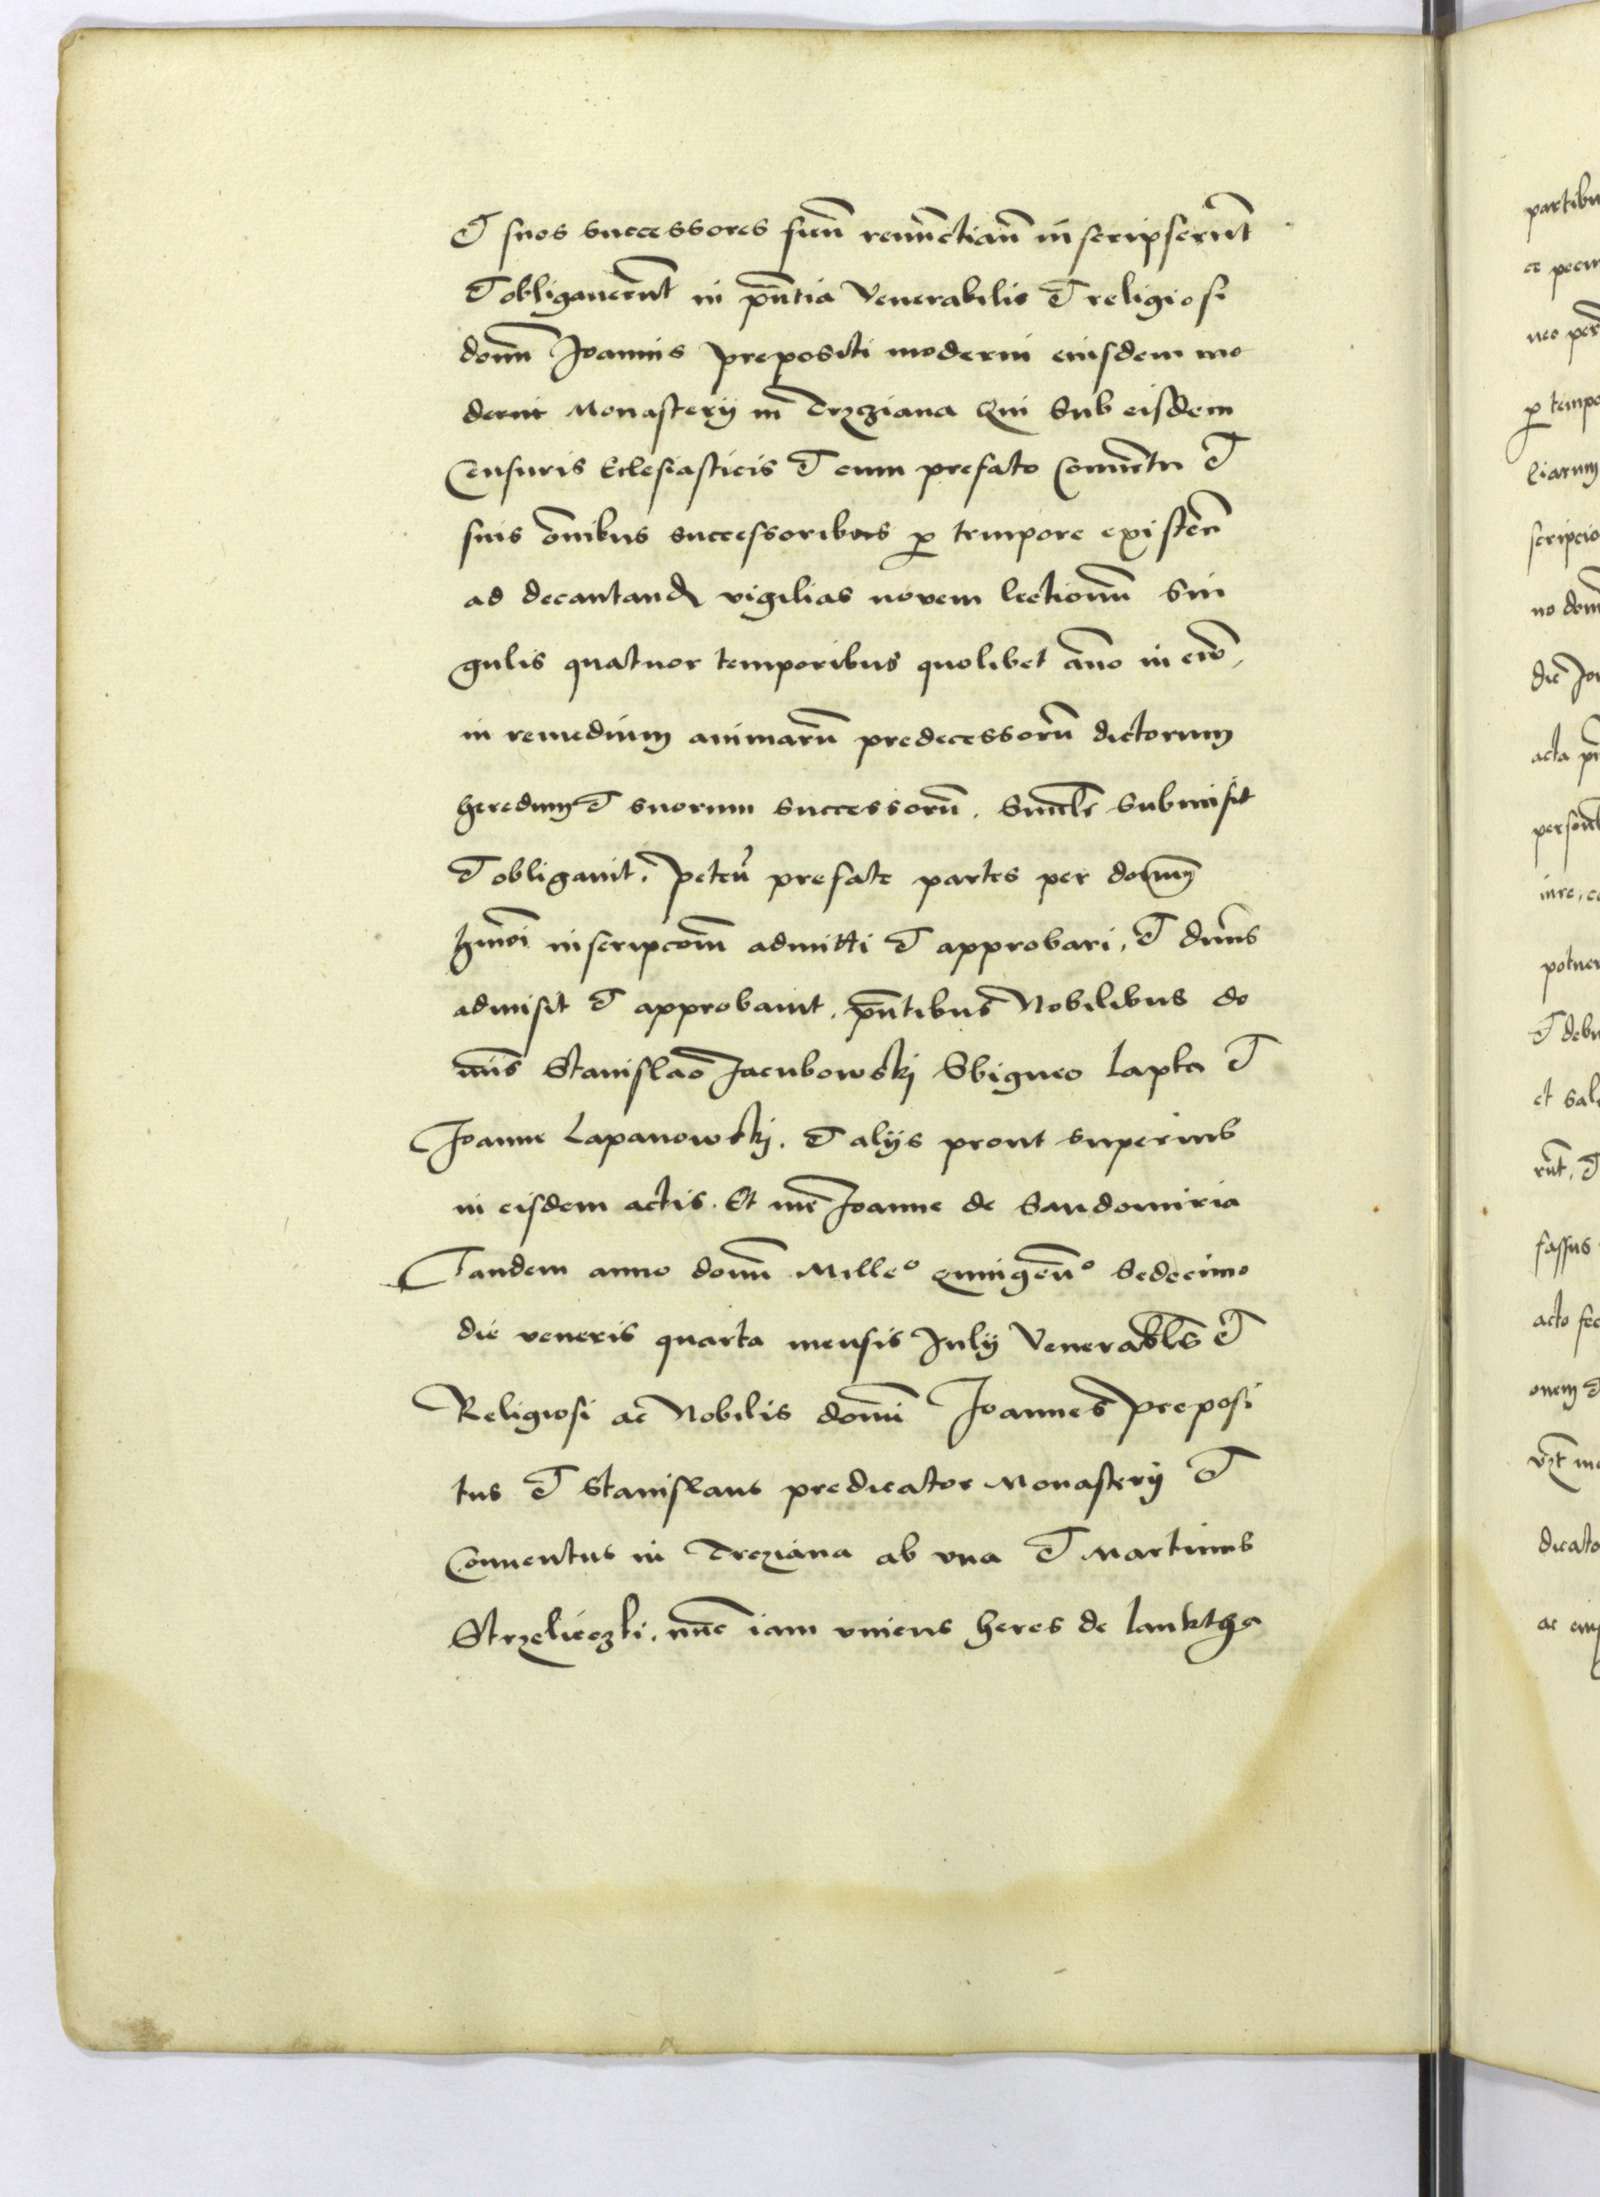 Et suos successores sum̄ renūctiāū inscripserūt
Et obligauerūt in pn̄tia Venerabilis Et religiosi
domī Joannis prepositi moderni eiusdem mo
derni Monastery in Trzcziana Qui Sub eisdem
Censuris Eclesiasticis Et cum prefato Conuētu Et
suis om̄ibus successoribus p tempore existeñ
ad decantand vigilias novem lectionū Sin
gulis quatuor temporibus quolibet āno in ... 
in remedium animarū predecessorū dictorum
heredum Et suorum successorū. Similr Submisit
Et obligauit. Peteñ prefate partes per domnū
hmōi inscripcōm admitti Et approbari, Et dnūs
admisit Et approbauit. pn̄tibus Nobilibus do
minis Stanislao Jacubowskj Sbigneo Lapka Et
Joanne Lapanowskj. Et alijs prout superius
in eisdem actis. Et me Joanne de Sandomiria
Tandem anno domī Milleo Quingēno Sedecimo
die veneris quarta mensis July Venerabls Et
Religiosi ac Nobilis domī Joannes Preposi
tus Et Stanislaus predicator Monastery Et
Conuentus in Trcziana ab vna Et Martinus
Strzeliczki. nūc iam viuens heres de Lanktha
partibu
ne per
p tempo
liarum
scripcio
no dom
die Jo
acta
inre,
potuer
Et debu
et sal
rūt, Et
fassus
acto fec
onem Et
dicato
ac eius